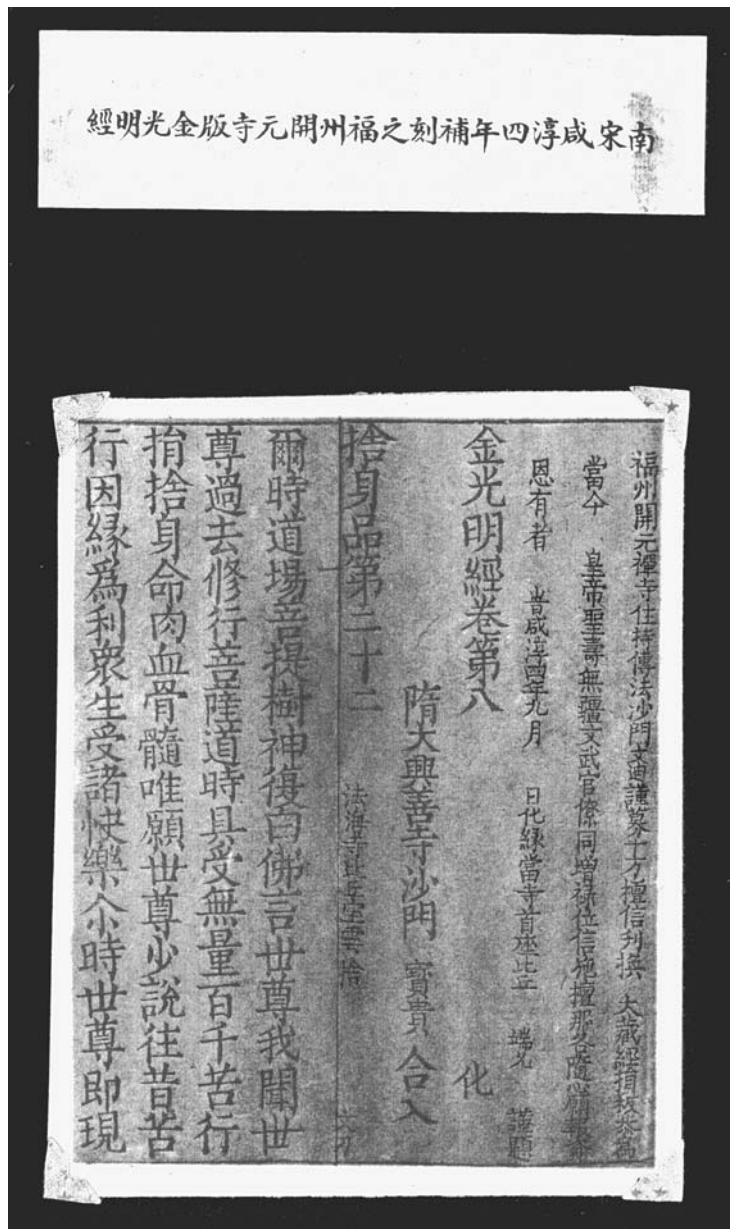 南宋咸淳四年補刻之福州開元寺版金光明經
福州開元禪寺住持傳法沙門文迪謹募十方檀信刋換 大藏經損板恭爲
當今 皇帝聖壽無疆文武官僚同增禄位信施檀那各隨心願報荅
恩有者 旹咸淳四年九月 日化緣當寺首座比丘 謹題
金光明經卷第八 化
隋大興善寺沙門 寶貴 合入
捨身品第二十二
法海寺比丘 捨
爾時道場菩提樹神復白佛言世尊我聞世
尊過去修行菩薩道時具受無量百千苦行
捐捨身命肉血骨髓唯願世尊少說往昔苦
行因緣爲利衆生受諸快樂尒時世尊即現